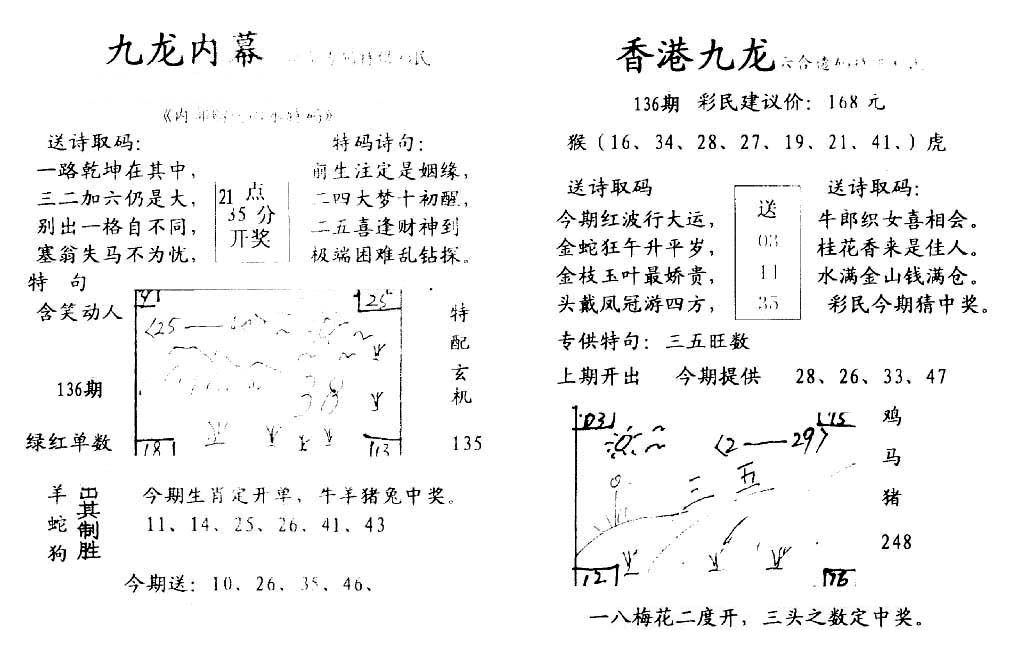 九龙内幕
送诗取码：
一路乾坤在其中，
三二加六仍是大，
别出一格自不同，
塞翁失马不为忧，
21点
35分
开奖
特码诗句：
前生注定是姻缘，
二四大梦十初醒，
二五喜逢财神到
极端困难乱钻探。
特 句
含笑动人
136期
绿红单数
41
25
〈25
38
18
113
特
配
玄
机
135
羊
蛇
狗
出其制胜
今期生肖定开单，牛羊猪兔中奖。
11、14、25、26、41、43
今期送：10、26、35、46、
香港九龙
136期 彩民建议价：168元
猴（16、34、28、27、19、21、41、）虎
送诗取码
今期红波行大运，
金蛇狂午升平岁，
金枝玉叶最娇贵，
头戴凤冠游四方，
送
03
11
35
送诗取码：
牛郎织女喜相会。
桂花香来是佳人。
水满金山钱满仓。
彩民今期猜中奖。
专供特句：三五旺数
上期开出 今期提供 28、26、33、47
03
15
〈2——29〉
三 五
12
16
鸡
马
猪
248
一八梅花二度开，三头之数定中奖。